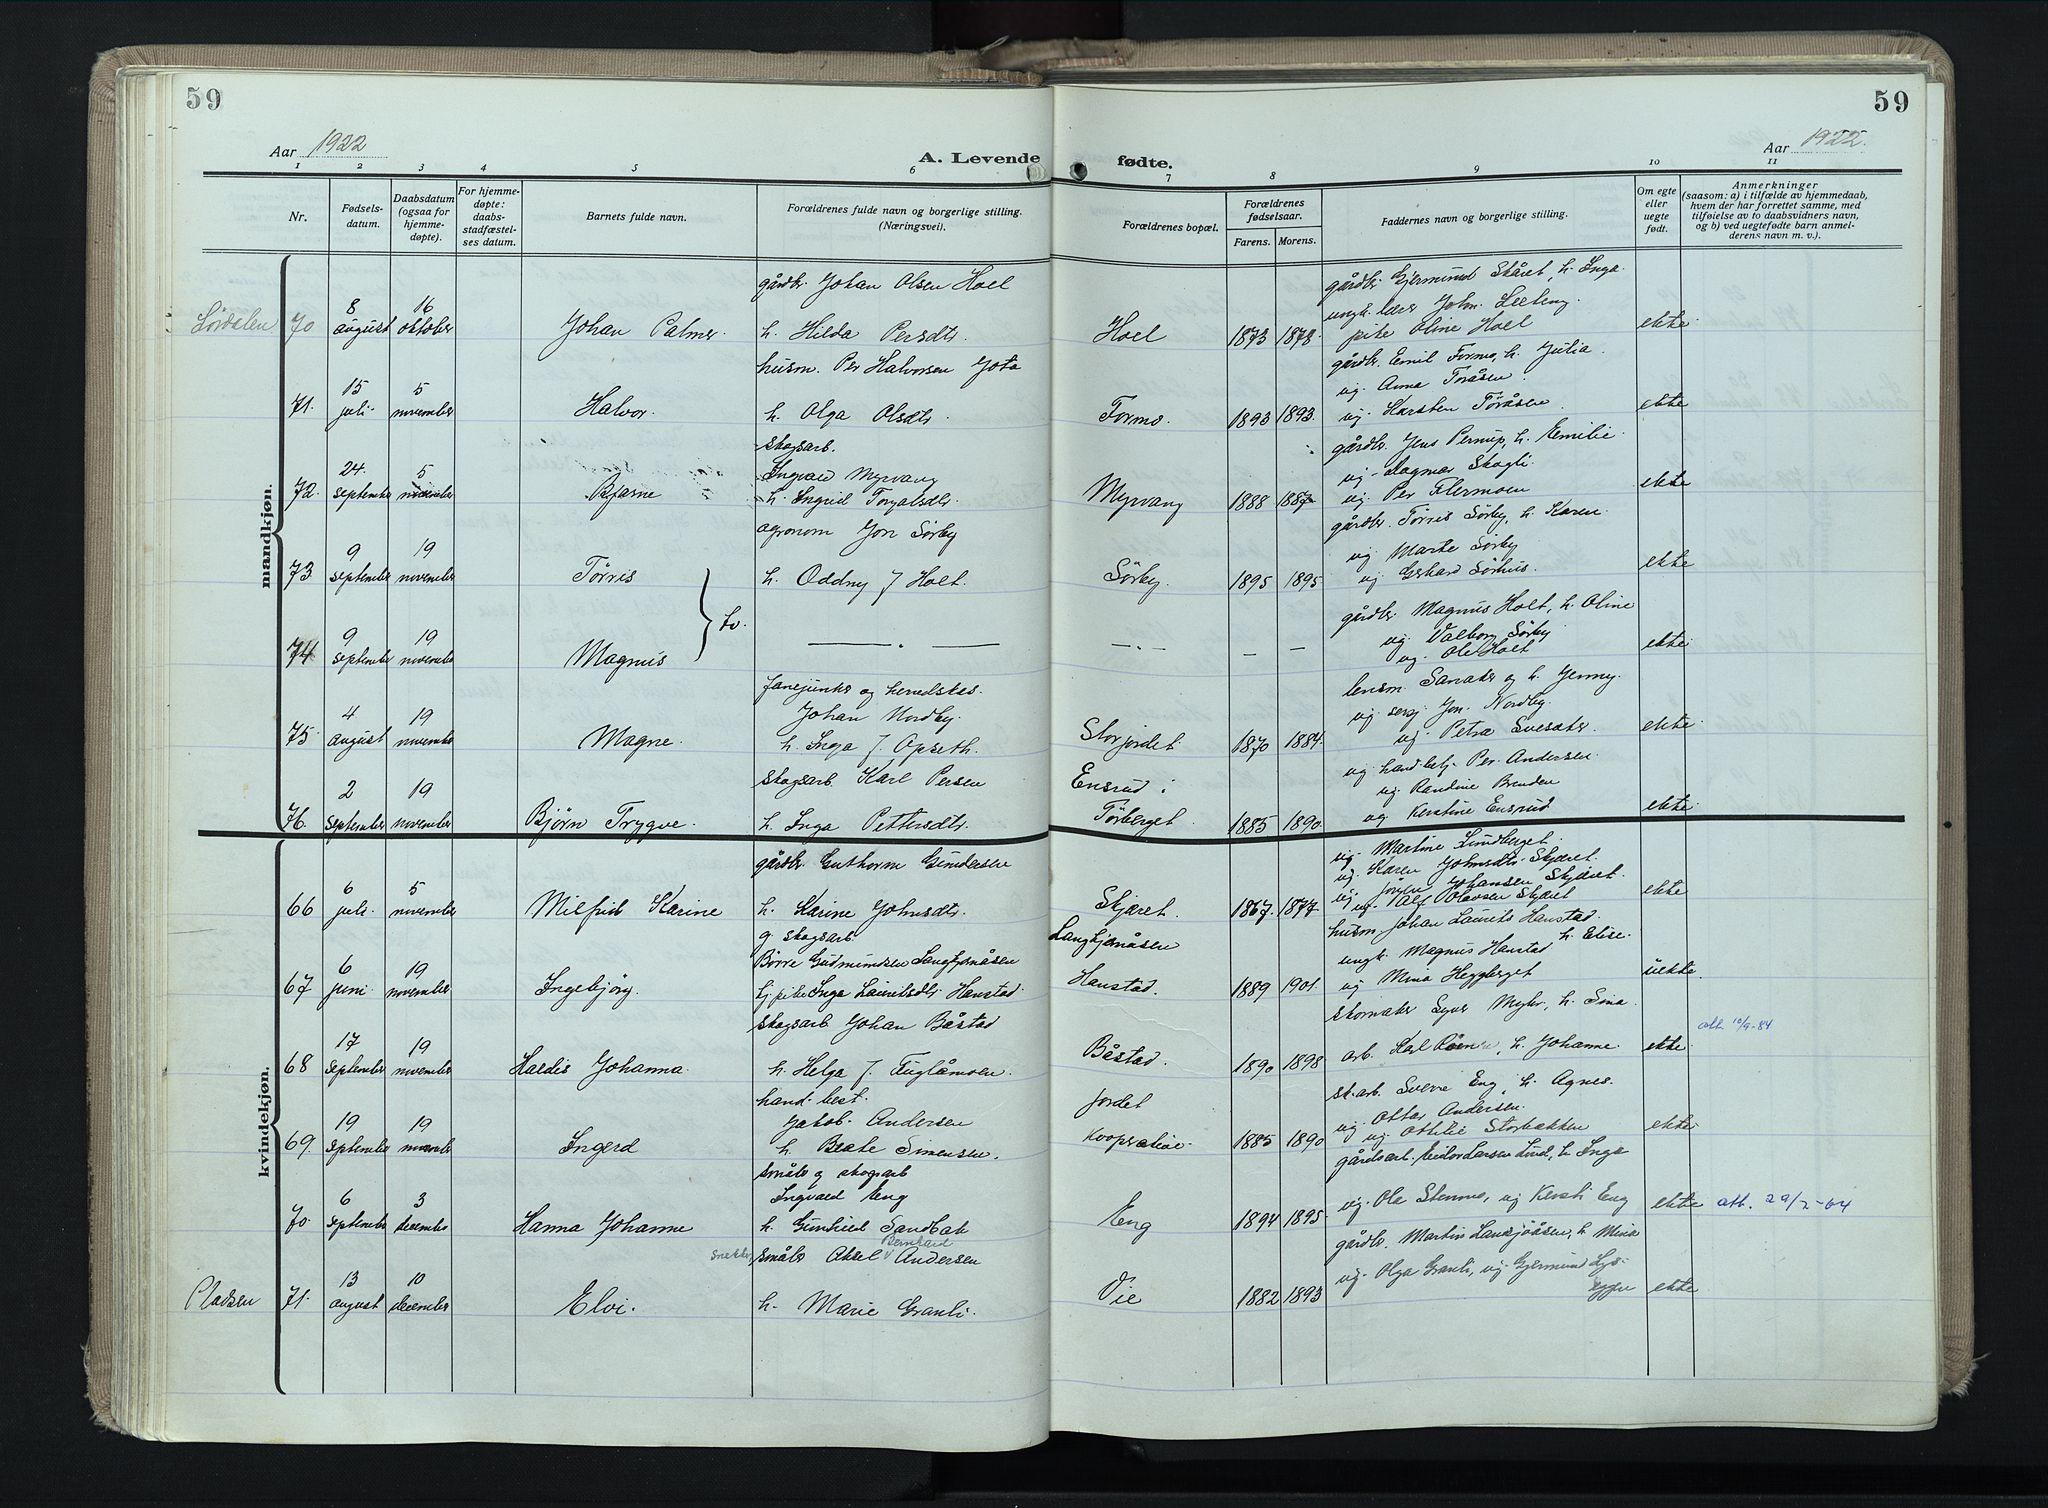 59
59
Aar 1922
A. Levende fødte.
Aar 1922.
1 2 3 4 5 6 7 8 9 10 11
Nr.
Fødsels-
datum.
Daabsdatum
(ogsaa for
hjemme-
døpte).
For hjemme-
døpte:
daabs-
stadfæstel-
ses datum.
Barnets fulde navn.
Forældrenes fulde navn og borgerlige stilling.
(Næringsvei).
Forældrenes bopæl.
Forældrenes
fødselsaar.
Farens. Morens.
Faddernes navn og borgerlige stilling.
Om egte
eller
uegte
født.
Anmerkninger
(saasom: a) i tilfælde av hjemmedaab,
hvem der har forrettet samme, med
tilføielse av to daabsvidners navn,
og b) ved uegtefødte barn anmel-
derens navn m. v.).
mandkjøn.
gårdbr. Johan Olsen Hoel
gårdbr. Gjermund Skåret, h. Inga
8 16
ungk. lærer John
70 august oktober Johan Palmer h. Hilda Persdtr. Hoel 1873 1878 pike Oline Hoel ekte
husm. Per Halvorsen Jota
gårdbr. Emil Formo, h. Julia
15 5
ug. Anna Toråsen
71. juli november Halvor. h. Olga Olsdtr. Formo. 1893 1893. ug. Karsten Toråsen ekte
skogsarb.
gårdbr. Jens Pernup, h. Emilie
24. 5
Ingvald Myrvang
ug. Dagmar Skogli
72. september november Bjarne h. Ingrid Torgalsdtr. Myrvang 1888 1887 ug. Per Flermoen ekte
agronom Jon Sørby
gårdbr. Tørris Sørby, h. Karen
9 19
ug Marte Sørby
73 september november Tørris h. Oddny f. Holt. Sørby. 1895 1895 ug. Gerhard Sørhus. ekte
to.
gårdbr. Magnus Holt, h. Oline
9 19
ug. Valborg Sørby
74 september november Magnus — . — — . — — — ug. Ole Holt ekte
fanejunker og herredskas.
lensm. Sanaker og h. Jenny
4 19
Johan Nordby.
ug serg. Jon. Nordby
75 august november Magne. h. Inga f. Opseth. Storjordet. 1870 1884. ug. Petra Svesaker. ekte
skogsarb. Karl Persen
Ensrud i
ug handbetj. Per. Andersen
2 19
ug. Randine Brenden
76. september november Bjørn Trygve. h. Inga Pettersdtr. Tørberget. 1885 1890. ug Kerstine Ensrud ekte
kvindekjøn.
gårdbr. Guthorm Gundersen
ug. Martine Lundberget.
ug. Karen Johnsdtr Skjæret.
6 5
ug Jørgen Johansen Skjæret.
66 juli. november Milfrid Karine h. Karine Johnsdtr. Skjæret. 1867. 1877 ug. Alf Olavsen Skjæret ekte
g. skogsarb.
Langkjønåsen
husm. Johan Laurits Hanstad.
6 19
Børre Gudmundsen Langkjønåsen
ungk. Magnus Hanstad h. Elise.
67 juni november Ingebjørg. tj. pike Inga Lauritsdtr Hanstad. Hanstad. 1889 1901. ug Mina Heggberget uekte.
skogsarb Johan Båstad
skomaker Syver Myhr, h. Sina
17 19
att. 10/9-84
68 september november Haldis Johanna. h. Helga f. Fuglåmoen. Båstad. 1890 1898 arb. Karl Roen, h. Johanne. ekte
hand. best.
Jordet
sk.arb. Sverre Eng, h. Agnes.
19 19
Jakob Andersen
ug. Ottar Andersen.
69. september november Ingerd h. Beate Simensen. Kooperative. 1885 1890 ug. Ottilie Storbækken ekte
småbr g skogsarb
gårdsarb. Larsen Lund, h. Inga
6 3
Ingvald Eng
70. september december Hanna Johanne h. Gunhild Sandbak Eng 1894 1895 ug. Ole Stenmo, ug Kersti Eng ekte att. 29/2-64
snekker, småbr Aksel Bernhard Andersen
gårdbr. Martin Lansjøåsen, h. Mina
13 10
ug. Olga Granli, ug. Gjermund Lys-
Pladsen 71. august december Elvi. h. Marie Granli. Vie 1882 1893 eggen ekte